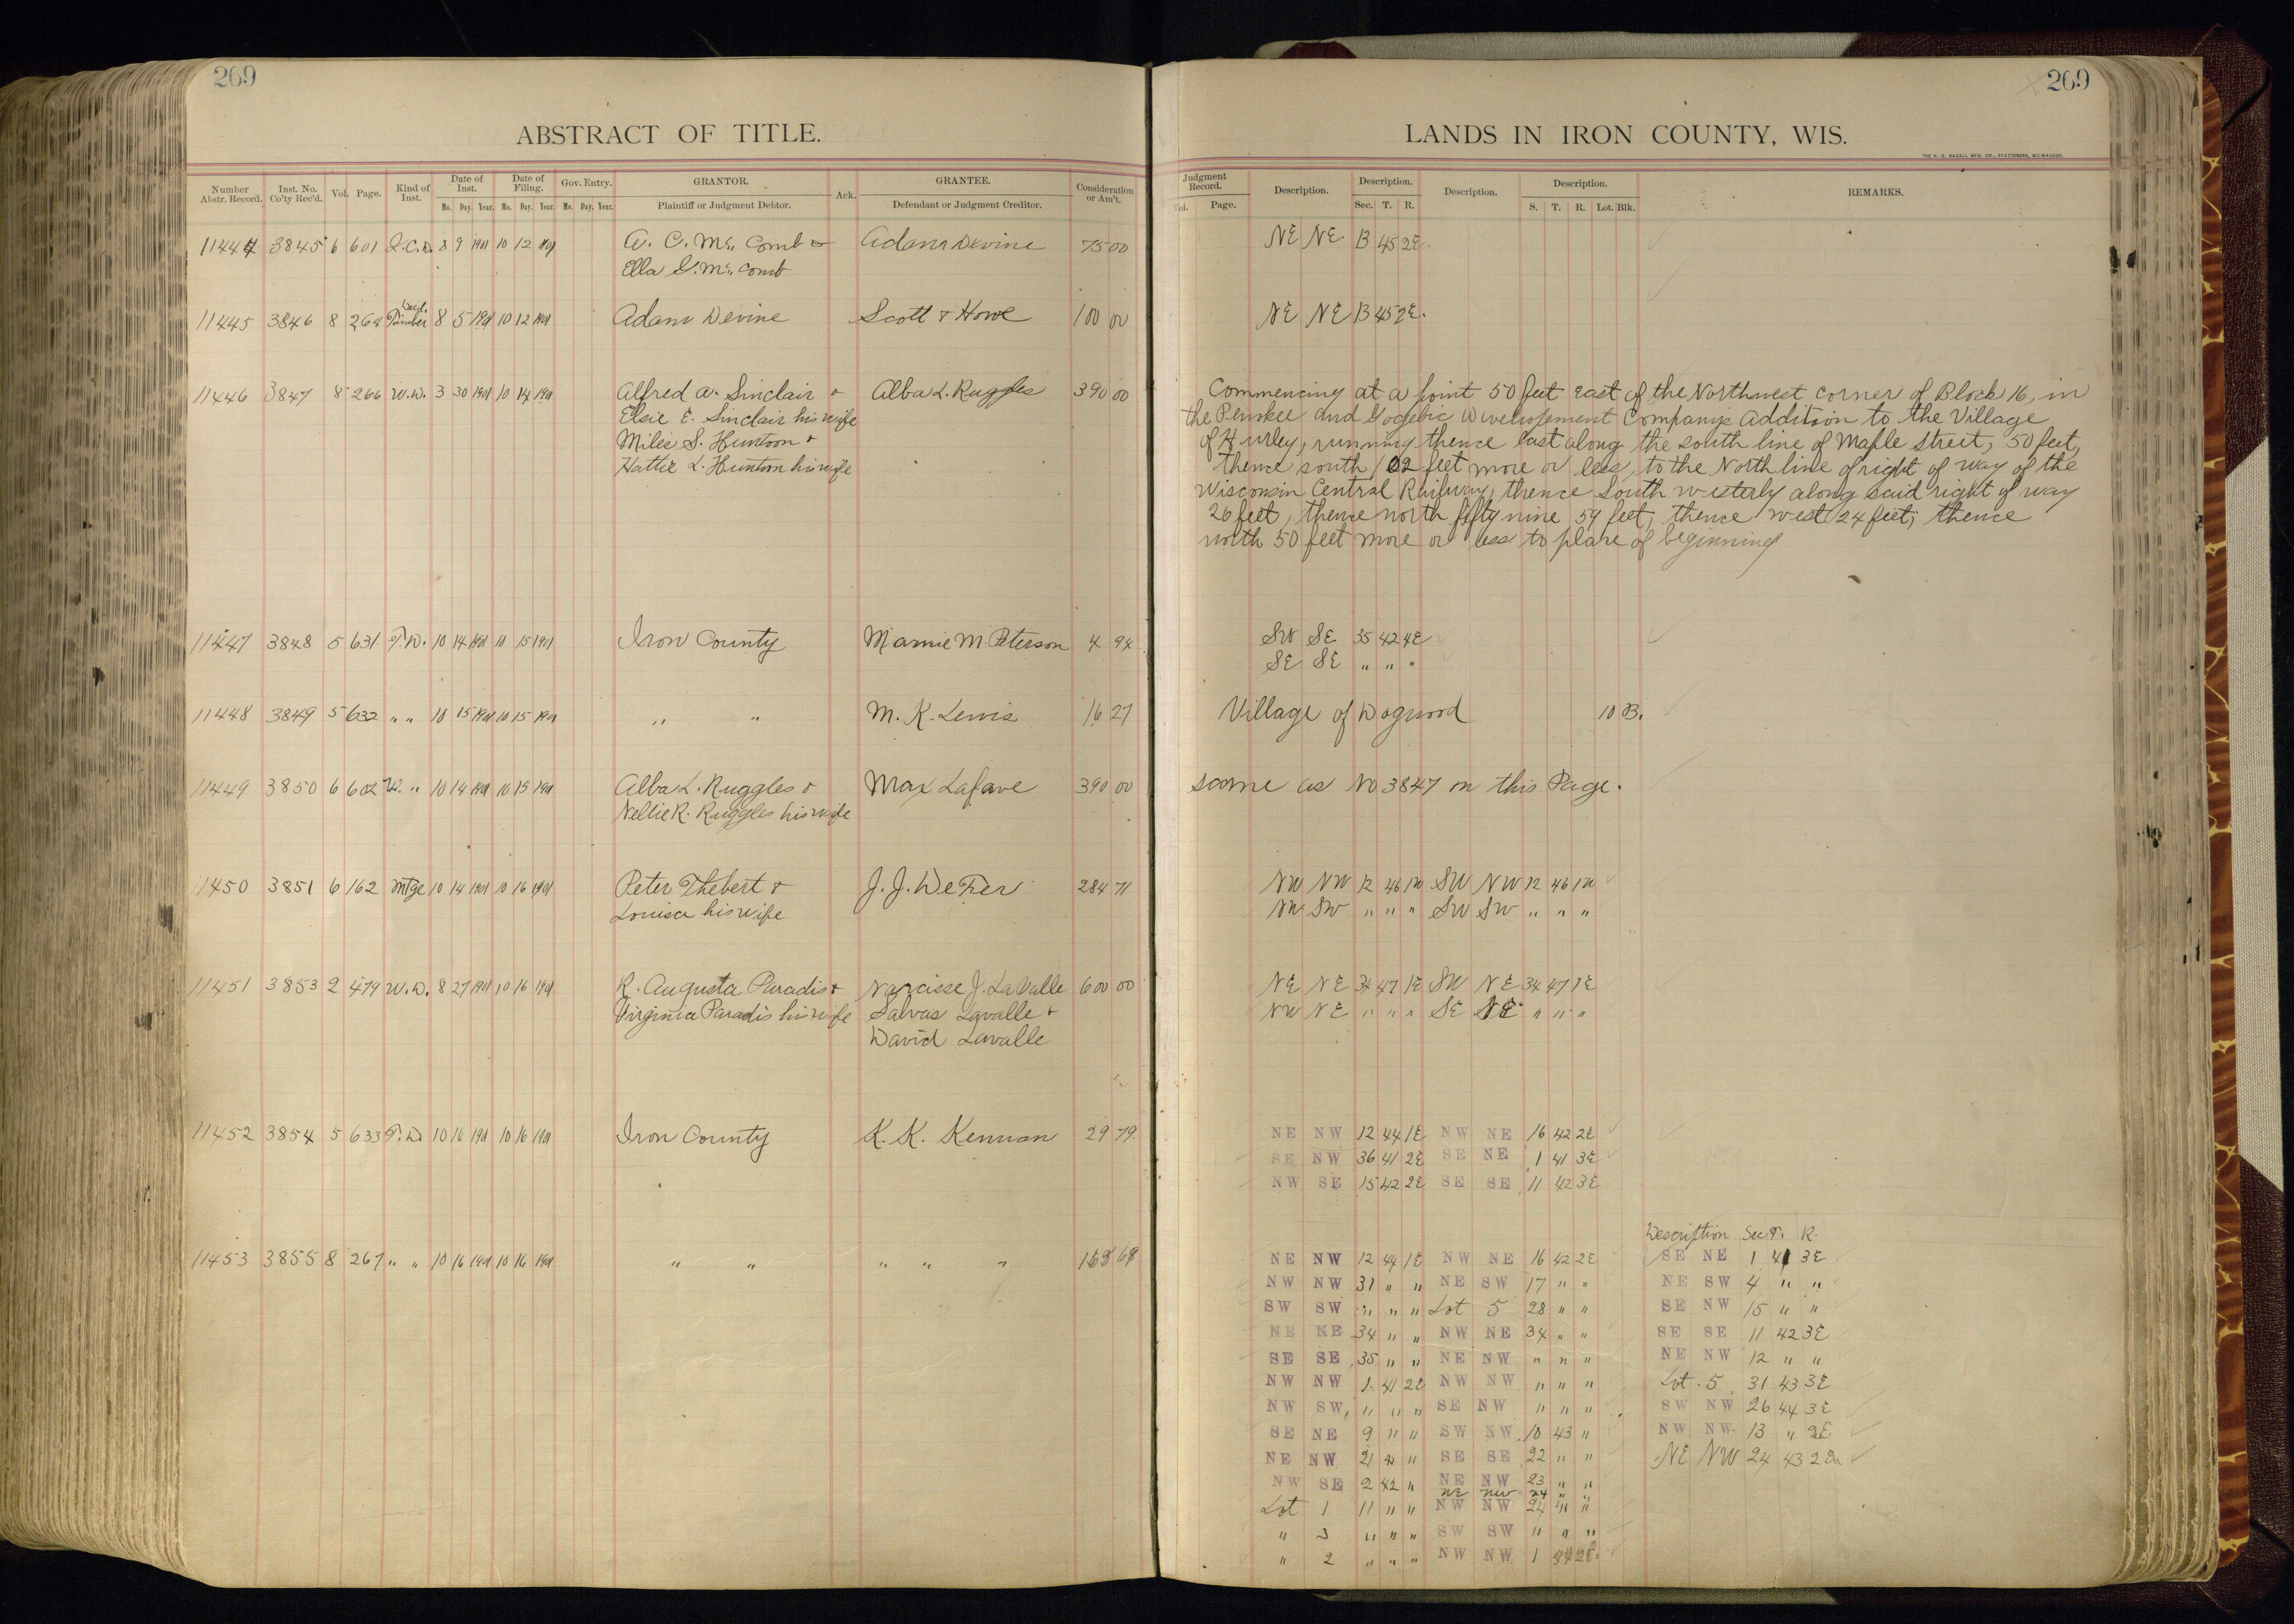 269
ABSTRACT OF TITLE.
Number Abstr. Record. Inst. No. Co'ty Rec'd. Vol. Page. Kind of Inst. Date of Inst. Mo. Day. Year. Date of Filing. Mo. Day. Year. Gov. Entry. Mo. Day. Year. GRANTOR. Plaintiff or Judgment Debtor. Ack. GRANTEE. Defendant or Judgment Creditor. Consideration or Am't.
11444 3845 6 601 Q.C.D. 8 9 1901 10 12 1901 A. C. Mc Comb & Adam Devine 75 00
Ella G. Mc Comb
Deed.
11445 3846 8 264 Timber 8 5 1901 10 12 1901 Adam Devine Scott & Howe 100 00
11446 3847 8 266 W.D. 3 30 1901 10 14 1901 Alfred A. Sinclair & Alba L. Ruggles 390 00
Elsie E. Sinclair his wife
Miles S. Huntoon &
Hattie L. Huntoon his wife
11447 3848 5 631 T.D. 10 14 1901 10 15 1901 Iron County Mamie M. Peterson 4 94
11448 3849 5 632 " " 10 15 1901 10 15 1901 " " M. K. Lewis 16 27
11449 3850 6 602 W. " 10 14 1901 10 15 1901 Alba L. Ruggles & Max Lafave 390 00
Nellie R. Ruggles his wife
11450 3851 6 162 Mtge 10 14 1901 10 16 1901 Peter Thebert & J. J. DeFer 284 71
Louisa his wife
11451 3853 2 479 W.D. 8 27 1901 10 16 1901 R. Augusta Paradis & Narcisse J. LaValle 600 00
Virginia Paradis his wife Salvas Lavalle &
David Lavalle
11452 3854 5 633 T.D 10 16 1901 10 16 1901 Iron County K. K. Kennan 29 79
11453 3855 8 267 " " 10 16 1901 10 16 1901 " " " " "
269
LANDS IN IRON COUNTY, WIS.
THE H. G. RAZALL MFG. CO., STATIONERS, MILWAUKEE.
Judgment Record. Vol. Page. Description. Description. Sec. T. R. Description. Description. S. T. R. Lot. Blk. REMARKS.
NE NE 13 45 2E.
NE NE 13 45 2E.
Commencing at a point 50 feet east of the Northwest corner of Block 16, in
the Penokee and Gogebic Development Companys Addition to the Village
of Hurley, running thence east along the south line of Maple Street, 50 feet,
thence south 102 feet more or less, to the North line of right of way of the
Wisconsin Central Railway, thence South westerly along said right of way
26 feet, thence north fifty nine 59 feet, thence west 24 feet, thence
north 50 feet more or less to place of beginning
SW SE 35 42 4E
SE SE " " "
Village of Dogwood 10 B.
same as No 3847 on this Page.
NW NW 12 46 1W SW NW 12 46 1W
NW SW " " " SW SW " " "
NE NE 34 47 1E SW NE 34 47 1E
NW NE " " " SE NE " " "
NE NW 12 44 1E NW NE 16 42 2E
SE NW 36 41 2E SE NE 1 41 3E
NW SE 15 42 2E SE SE 11 42 3E
Description Sec T. R.
NE NW 12 44 1E NW NE 16 42 2E SE NE 1 41 3E
NW NW 31 " " NE SW 17 " " NE SW 4 " "
SW SW " " " Lot 5 28 " " SE NW 15 " "
NE NE 34 " " NW NE 34 " " SE SE 11 42 3E
SE SE 35 " " NE NW " " " NE NW 12 " "
NW NW 1 41 2E NW NW " " " Lot 5 31 43 3E
NW SW " " " SE NW " " " SW NW 26 44 3E
SE NE 9 " " SW NW 10 43 " NW NW 13 " 2E
NE NW 21 " " SE SE 22 " " NE NW 24 43 2E
NW SE 2 42 " NE NW 23 " "
NE NW 24 " "
Lot 1 11 " " NW NW 24 " "
" 3 " " " SW SW " " "
" 2 " " " NW NW 1 44 2E